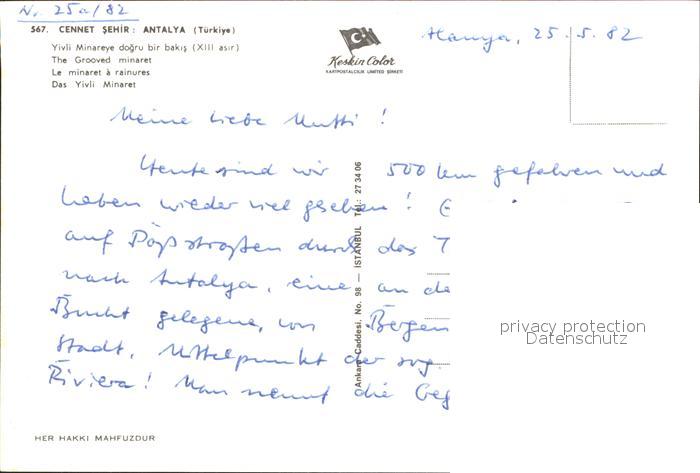 Nr. 25a/82
567. CENNET ŞEHİR: ANTALYA (Türkiye)
Yivli Minareye doğru bir bakış (XIII asır)
The Grooved minaret
Le minaret à rainures
Das Yivli Minaret
Keskin Color
KARTPOSTALCILIK LIMITED ŞİRKETİ
Alanya, 25.5.82
Meine liebe Mutti!
Heute sind wir 500 km gefahren und
haben wieder viel gesehen!
auf Paßstraßen durch das T
nach Antalya, eine an de
Bucht gelegene, von Bergen
Stadt, Mittelpunkt der sog.
Riviera! Man nennt die Geg
Ankara Caddesi, No. 98 — İSTANBUL Tel.: 27 34 06
HER HAKKI MAHFUZDUR
privacy protection
Datenschutz